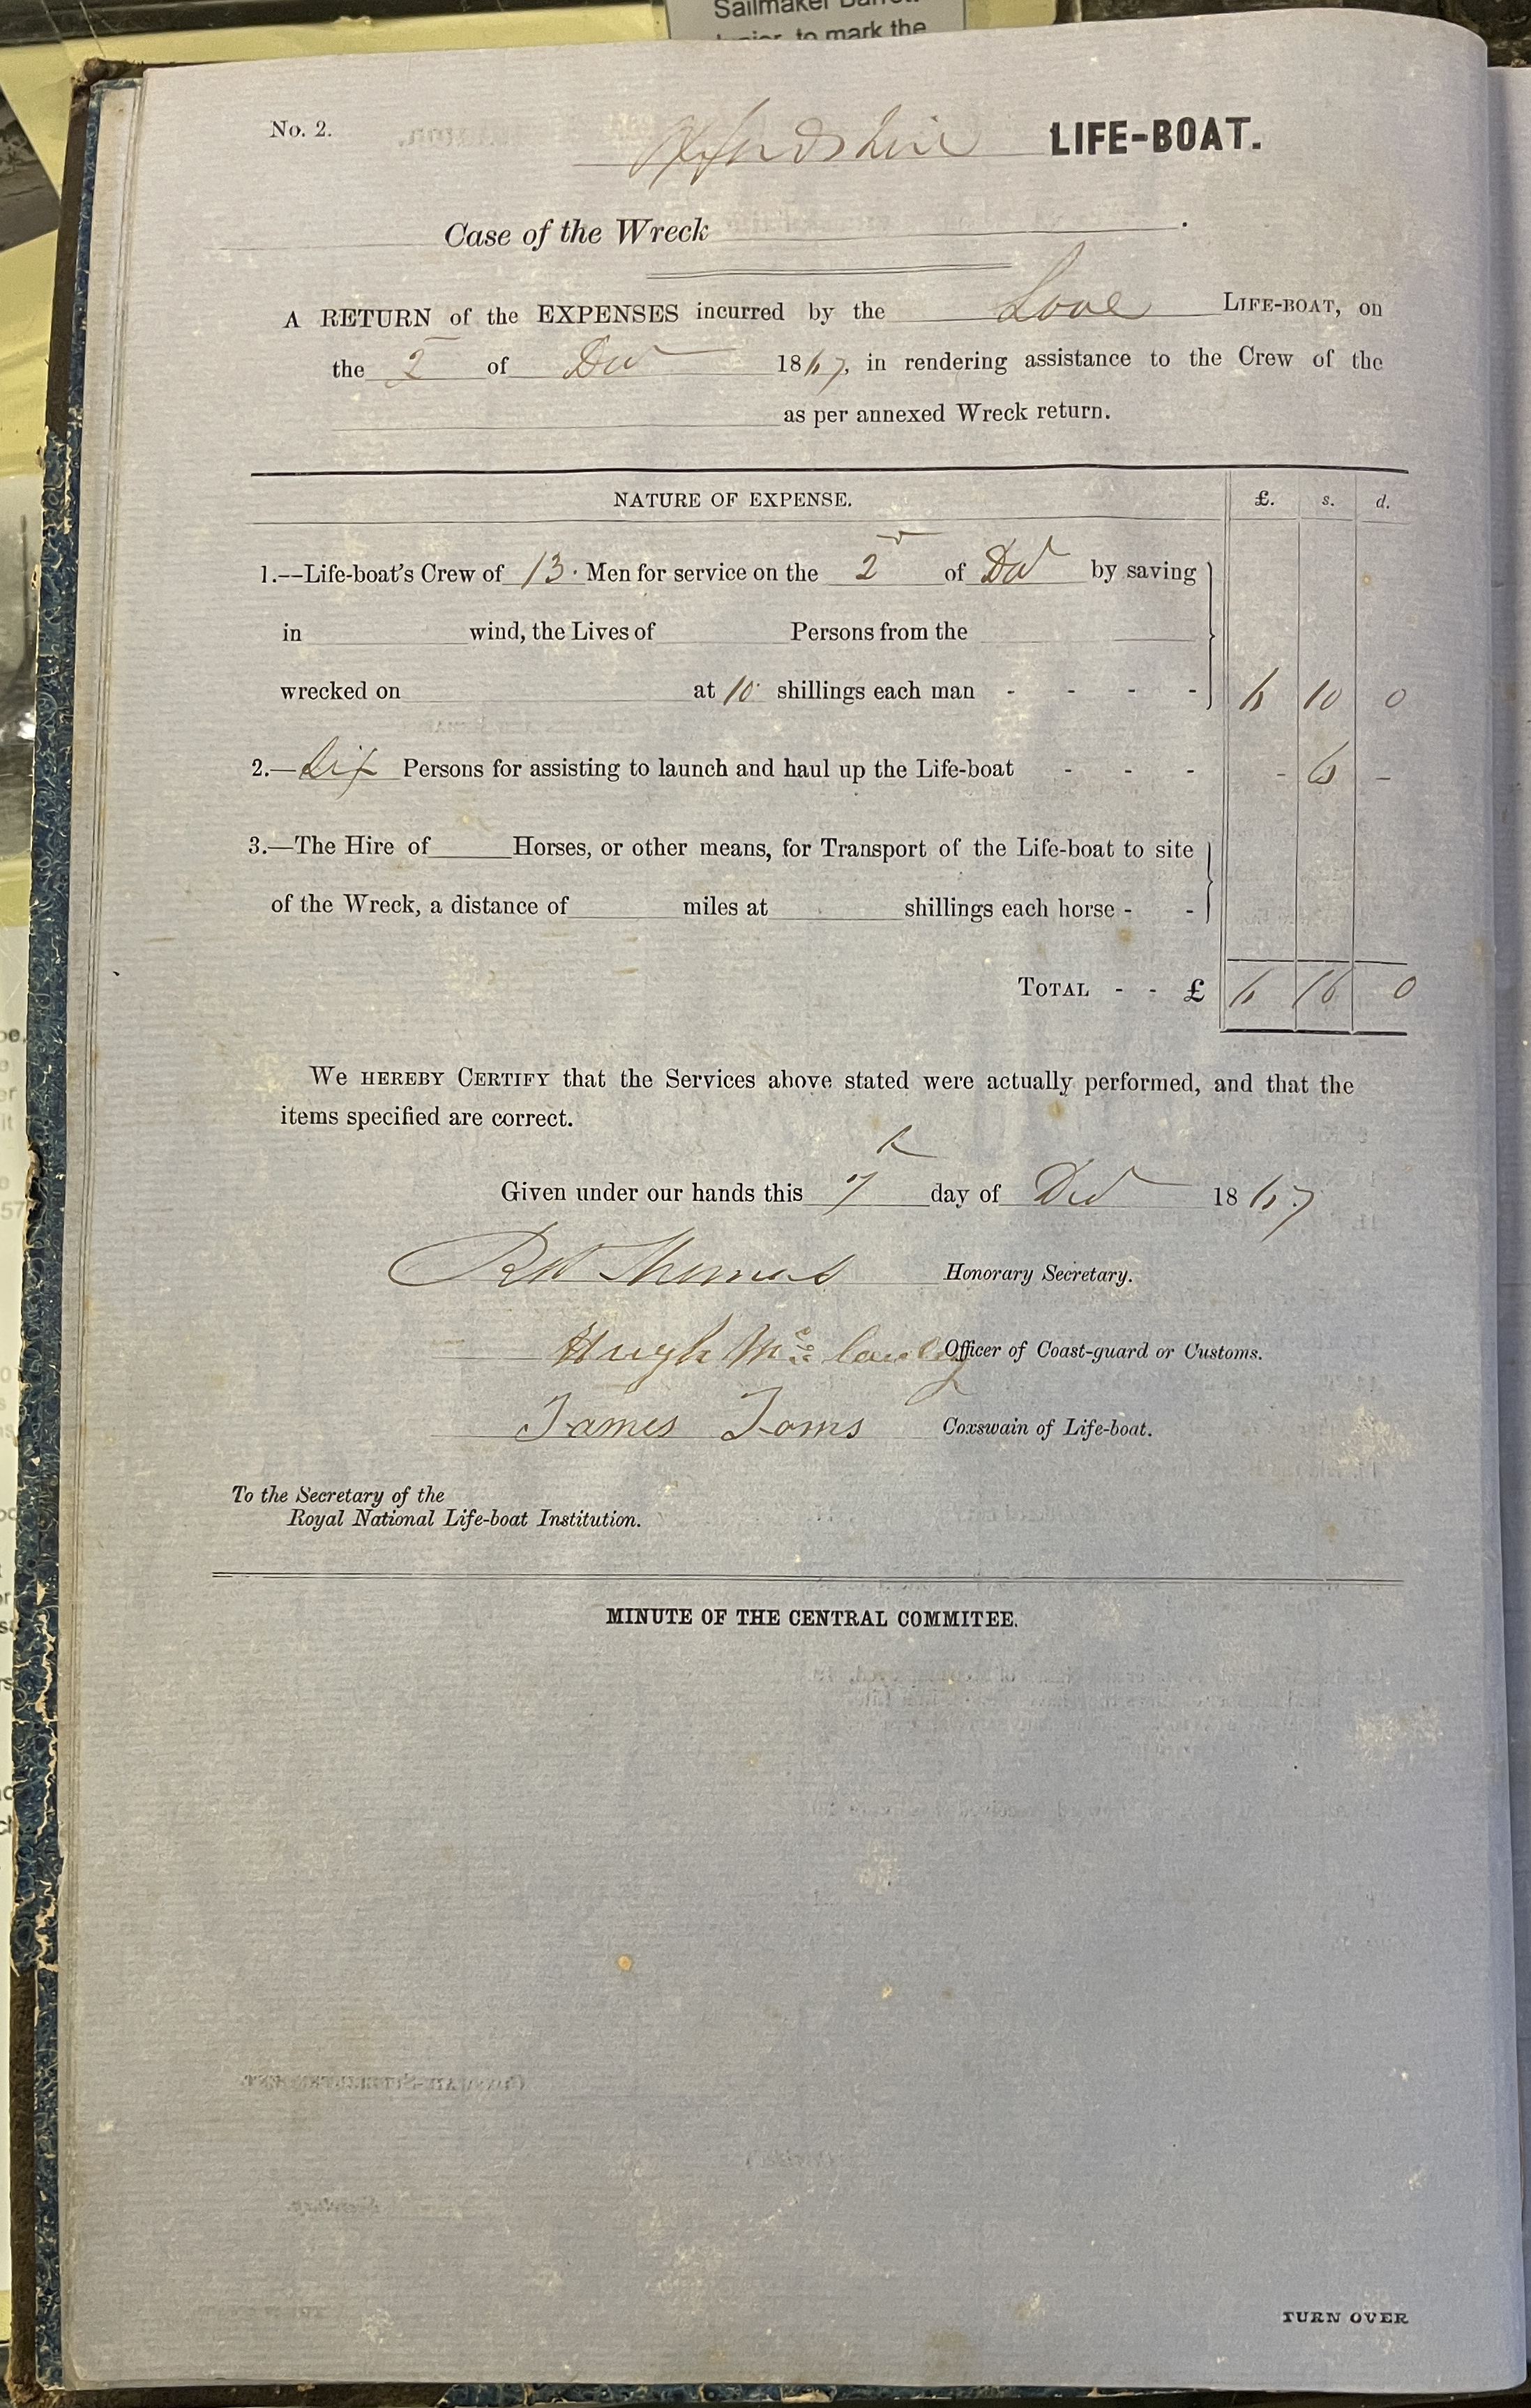 Sailmaker
to mark the
No. 2. Oxfordshire LIFE-BOAT.
Case of the Wreck .
A RETURN of the EXPENSES incurred by the Looe LIFE-BOAT, on
the 2 of Decr 1867, in rendering assistance to the Crew of the
as per annexed Wreck return.
NATURE OF EXPENSE. £. s. d.
1.--Life-boat's Crew of 13. Men for service on the 2 of Decr by saving
in wind, the Lives of Persons from the
wrecked on at 10 shillings each man - - - - 6 10 0
2.—Six Persons for assisting to launch and haul up the Life-boat - - - - 6 -
3.—The Hire of Horses, or other means, for Transport of the Life-boat to site
of the Wreck, a distance of miles at shillings each horse - -
TOTAL - - £ 6 16 0
WE HEREBY CERTIFY that the Services above stated were actually performed, and that the
items specified are correct.
Given under our hands this 7th day of Decr 1867
Thomas Honorary Secretary.
Hugh Officer of Coast-guard or Customs.
James Toms Coxswain of Life-boat.
To the Secretary of the
Royal National Life-boat Institution.
MINUTE OF THE CENTRAL COMMITEE.
TURN OVER